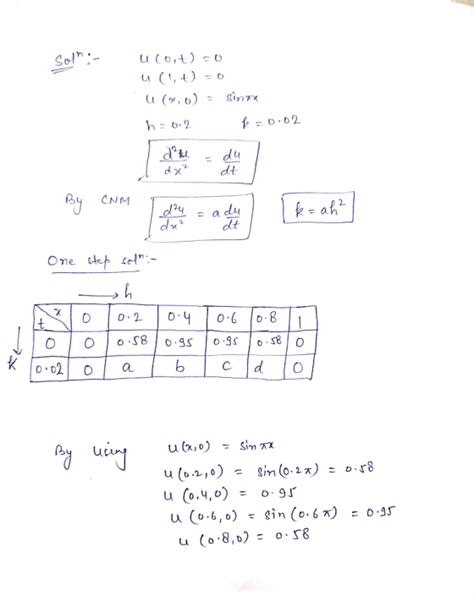 Solⁿ:- u(0,t) = 0
u(1,t) = 0
u(x,0) = sinπx
h = 0.2 k = 0.02
d²u/dx² = du/dt
By CNM d²u/dx² = a du/dt k = ah²
One step solⁿ:-
→ h
t x 0 0.2 0.4 0.6 0.8 1
0 0 0.58 0.95 0.95 0.58 0
k 0.02 0 a b c d 0
By using u(x,0) = sinπx
u(0.2,0) = sin(0.2π) = 0.58
u(0.4,0) = 0.95
u(0.6,0) = sin(0.6π) = 0.95
u(0.8,0) = 0.58